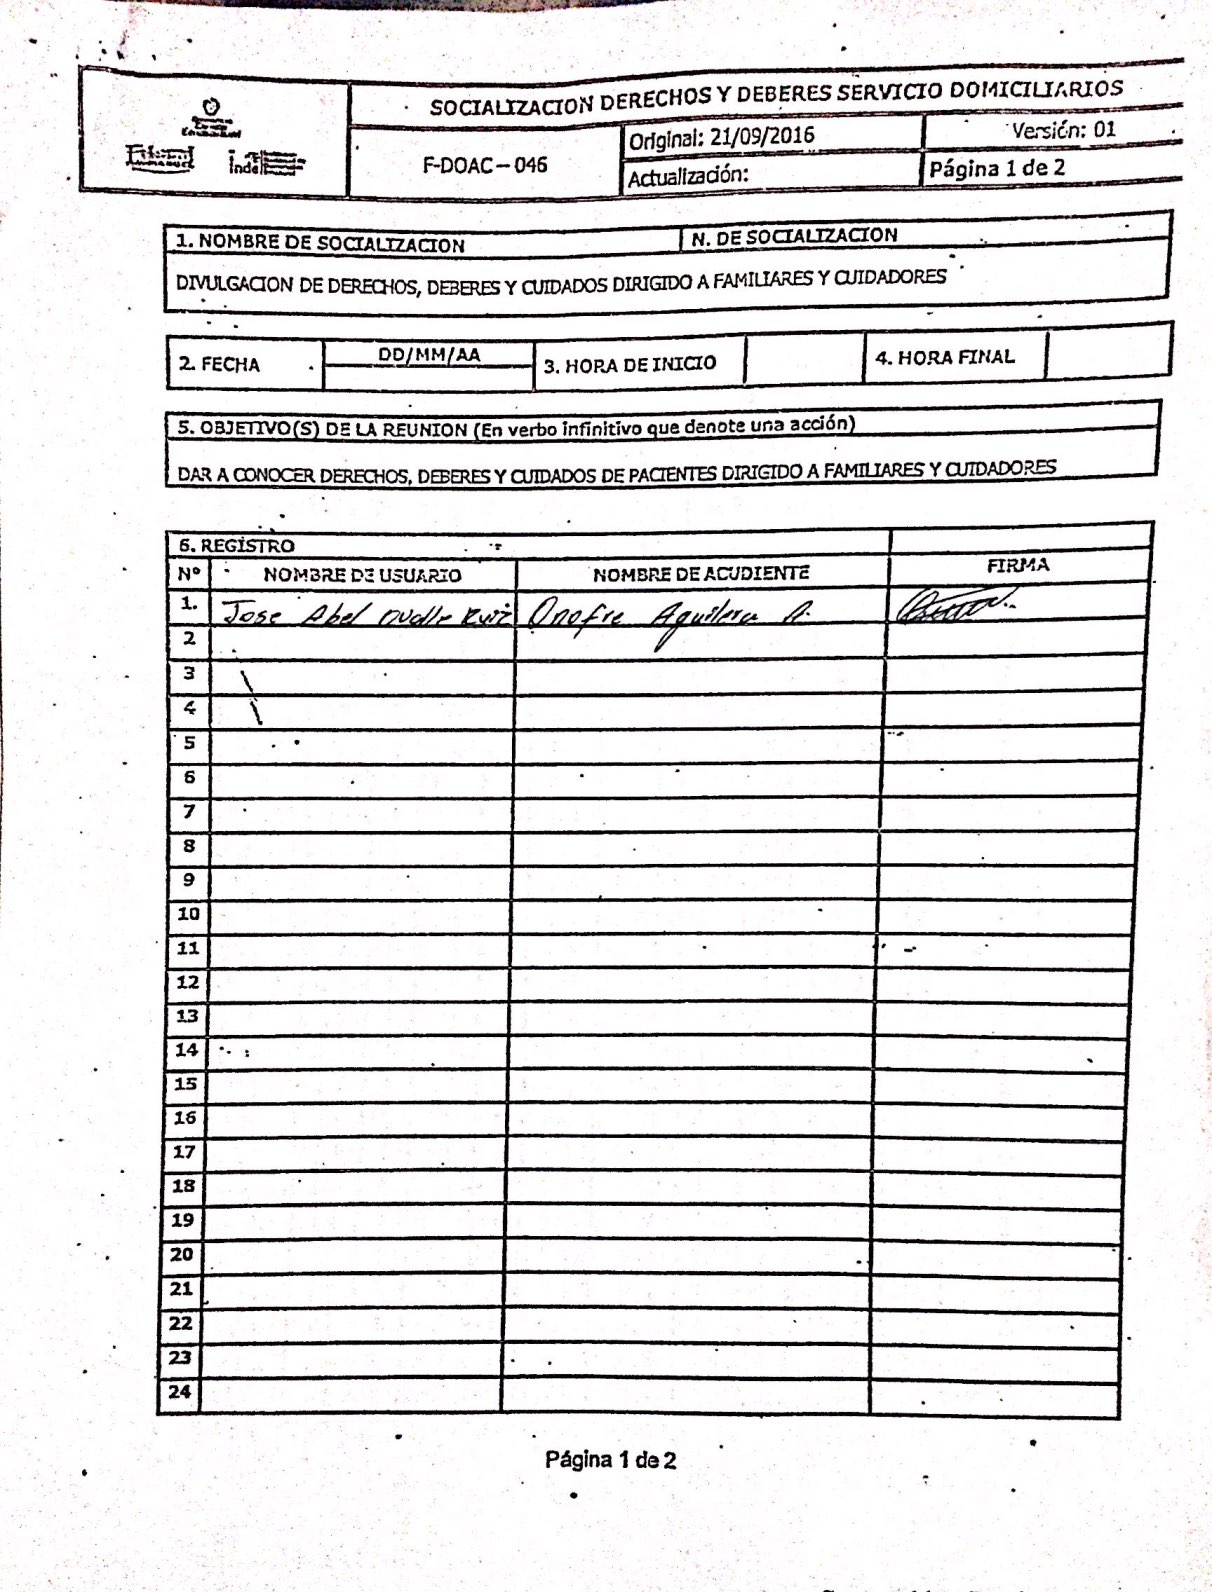 SOCIALIZACION DERECHOS Y DEBERES SERVICIO DOMICILIARIOS
F-DOAC-046
Original: 21/09/2016
Versión: 01
Actualización:
Página 1 de 2
1. NOMBRE DE SOCIALIZACION
N. DE SOCIALIZACION
DIVULGACION DE DERECHOS, DEBERES Y CUIDADOS DIRIGIDO A FAMILIARES Y CUIDADORES
2. FECHA
DD/MM/AA
3. HORA DE INICIO
4. HORA FINAL
5. OBJETIVO(S) DE LA REUNION (En verbo infinitivo que denote una acción)
DAR A CONOCER DERECHOS, DEBERES Y CUIDADOS DE PACIENTES DIRIGIDO A FAMILIARES Y CUIDADORES
6. REGISTRO
Nº NOMBRE DE USUARIO NOMBRE DE ACUDIENTE FIRMA
1. Jose Abel Ovalle Ruiz Onofre Aguilera A.
2
3
4
5
6
7
8
9
10
11
12
13
14
15
16
17
18
19
20
21
22
23
24
Página 1 de 2